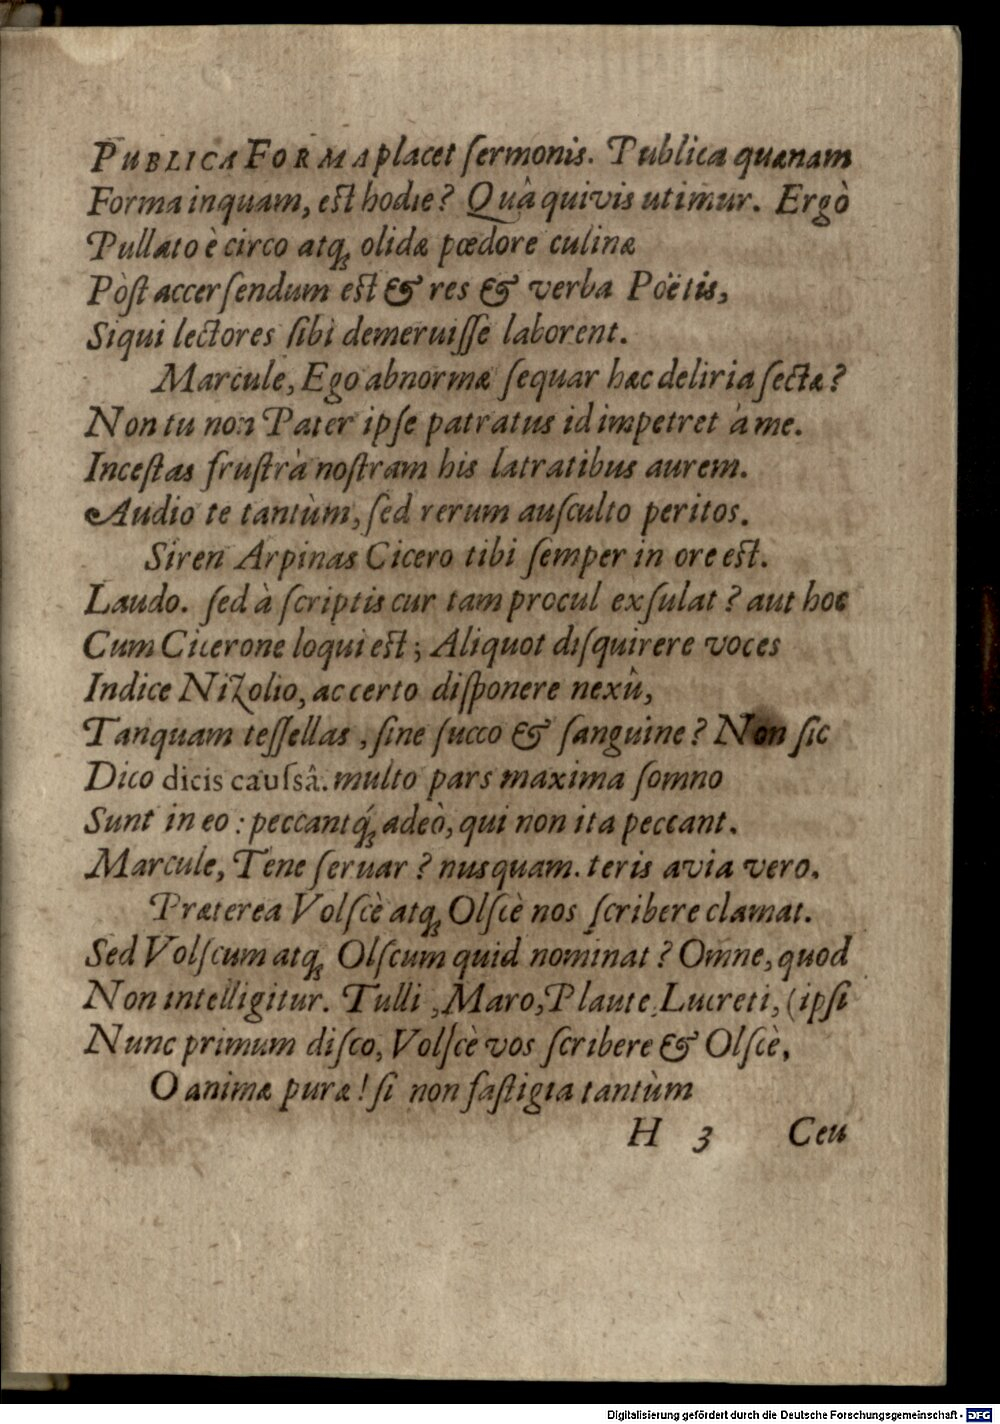 PUBLICA FORMA placet ſermonis. Publica quænam
Forma inquam, eſt hodie? Quâ quivis utimur. Ergò
Pullato è circo atq; olidæ pœdore culinæ
Pòſt accerſendum eſt & res & verba Poëtis,
Siqui lectores ſibi demeruiſſe laborent.
Marcule, Ego abnormæ ſequar hæc deliria ſectæ?
Non tu non Pater ipſe patratus id impetret à me.
Inceſtas fruſtrà noſtram his latratibus aurem.
Audio te tantùm, ſed rerum auſculto peritos.
Siren Arpinas Cicero tibi ſemper in ore eſt.
Laudo. ſed à ſcriptis cur tam procul exſulat? aut hoc
Cum Cicerone loqui eſt; Aliquot diſquirere voces
Indice Nizolio, ac certo diſponere nexû,
Tanquam teſſellas, ſine ſucco & ſanguine? Non ſic
Dico dicis cauſsâ. multo pars maxima ſomno
Sunt in eo: peccantq́; adeò, qui non ita peccant.
Marcule, Tene ſeruar? nusquam. teris avia vero.
Præterea Volſcè atq; Olſcè nos ſcribere clamat.
Sed Volſcum atq; Olſcum quid nominat? Omne, quod
Non intelligitur. Tulli, Maro, Plaute, Lucreti, (ipſi
Nunc primum diſco, Volſcè vos ſcribere & Olſcè,
O animæ puræ! ſi non faſtigia tantùm
H 3 Ceu
Digitalisierung gefördert durch die Deutsche Forschungsgemeinschaft - DFG